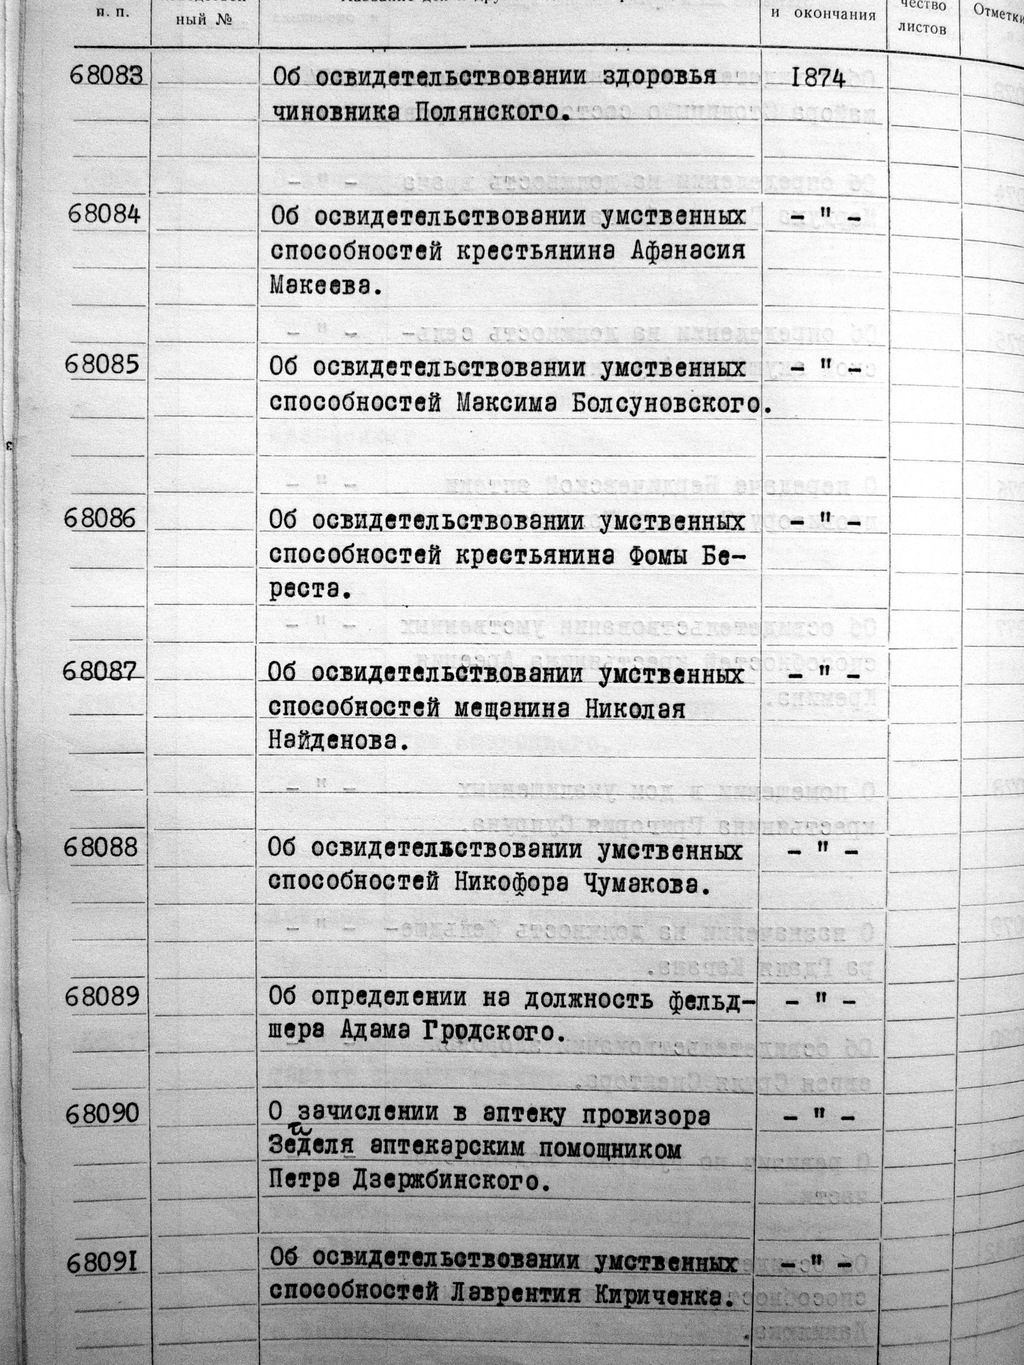 п. п.
ный №
и окончания
чество
листов
Отметки
68083 Об освидетельствовании здоровья 1874
чиновника Полянского.
68084 Об освидетельствовании умственных - " -
способностей крестьянина Афанасия
Макеева.
68085 Об освидетельствовании умственных - " -
способностей Максима Болсуновского.
68086 Об освидетельствовании умственных - " -
способностей крестьянина Фомы Бе-
реста.
68087 Об освидетельствовании умственных - " -
способностей мещанина Николая
Найденова.
68088 Об освидетельствовании умственных - " -
способностей Никофора Чумакова.
68089 Об определении на должность фельд- - " -
шера Адама Гродского.
68090 О зачислении в аптеку провизора - " -
Зейделя аптекарским помощником
Петра Дзержбинского.
68091 Об освидетельствовании умственных - " -
способностей Лаврентия Кириченка.